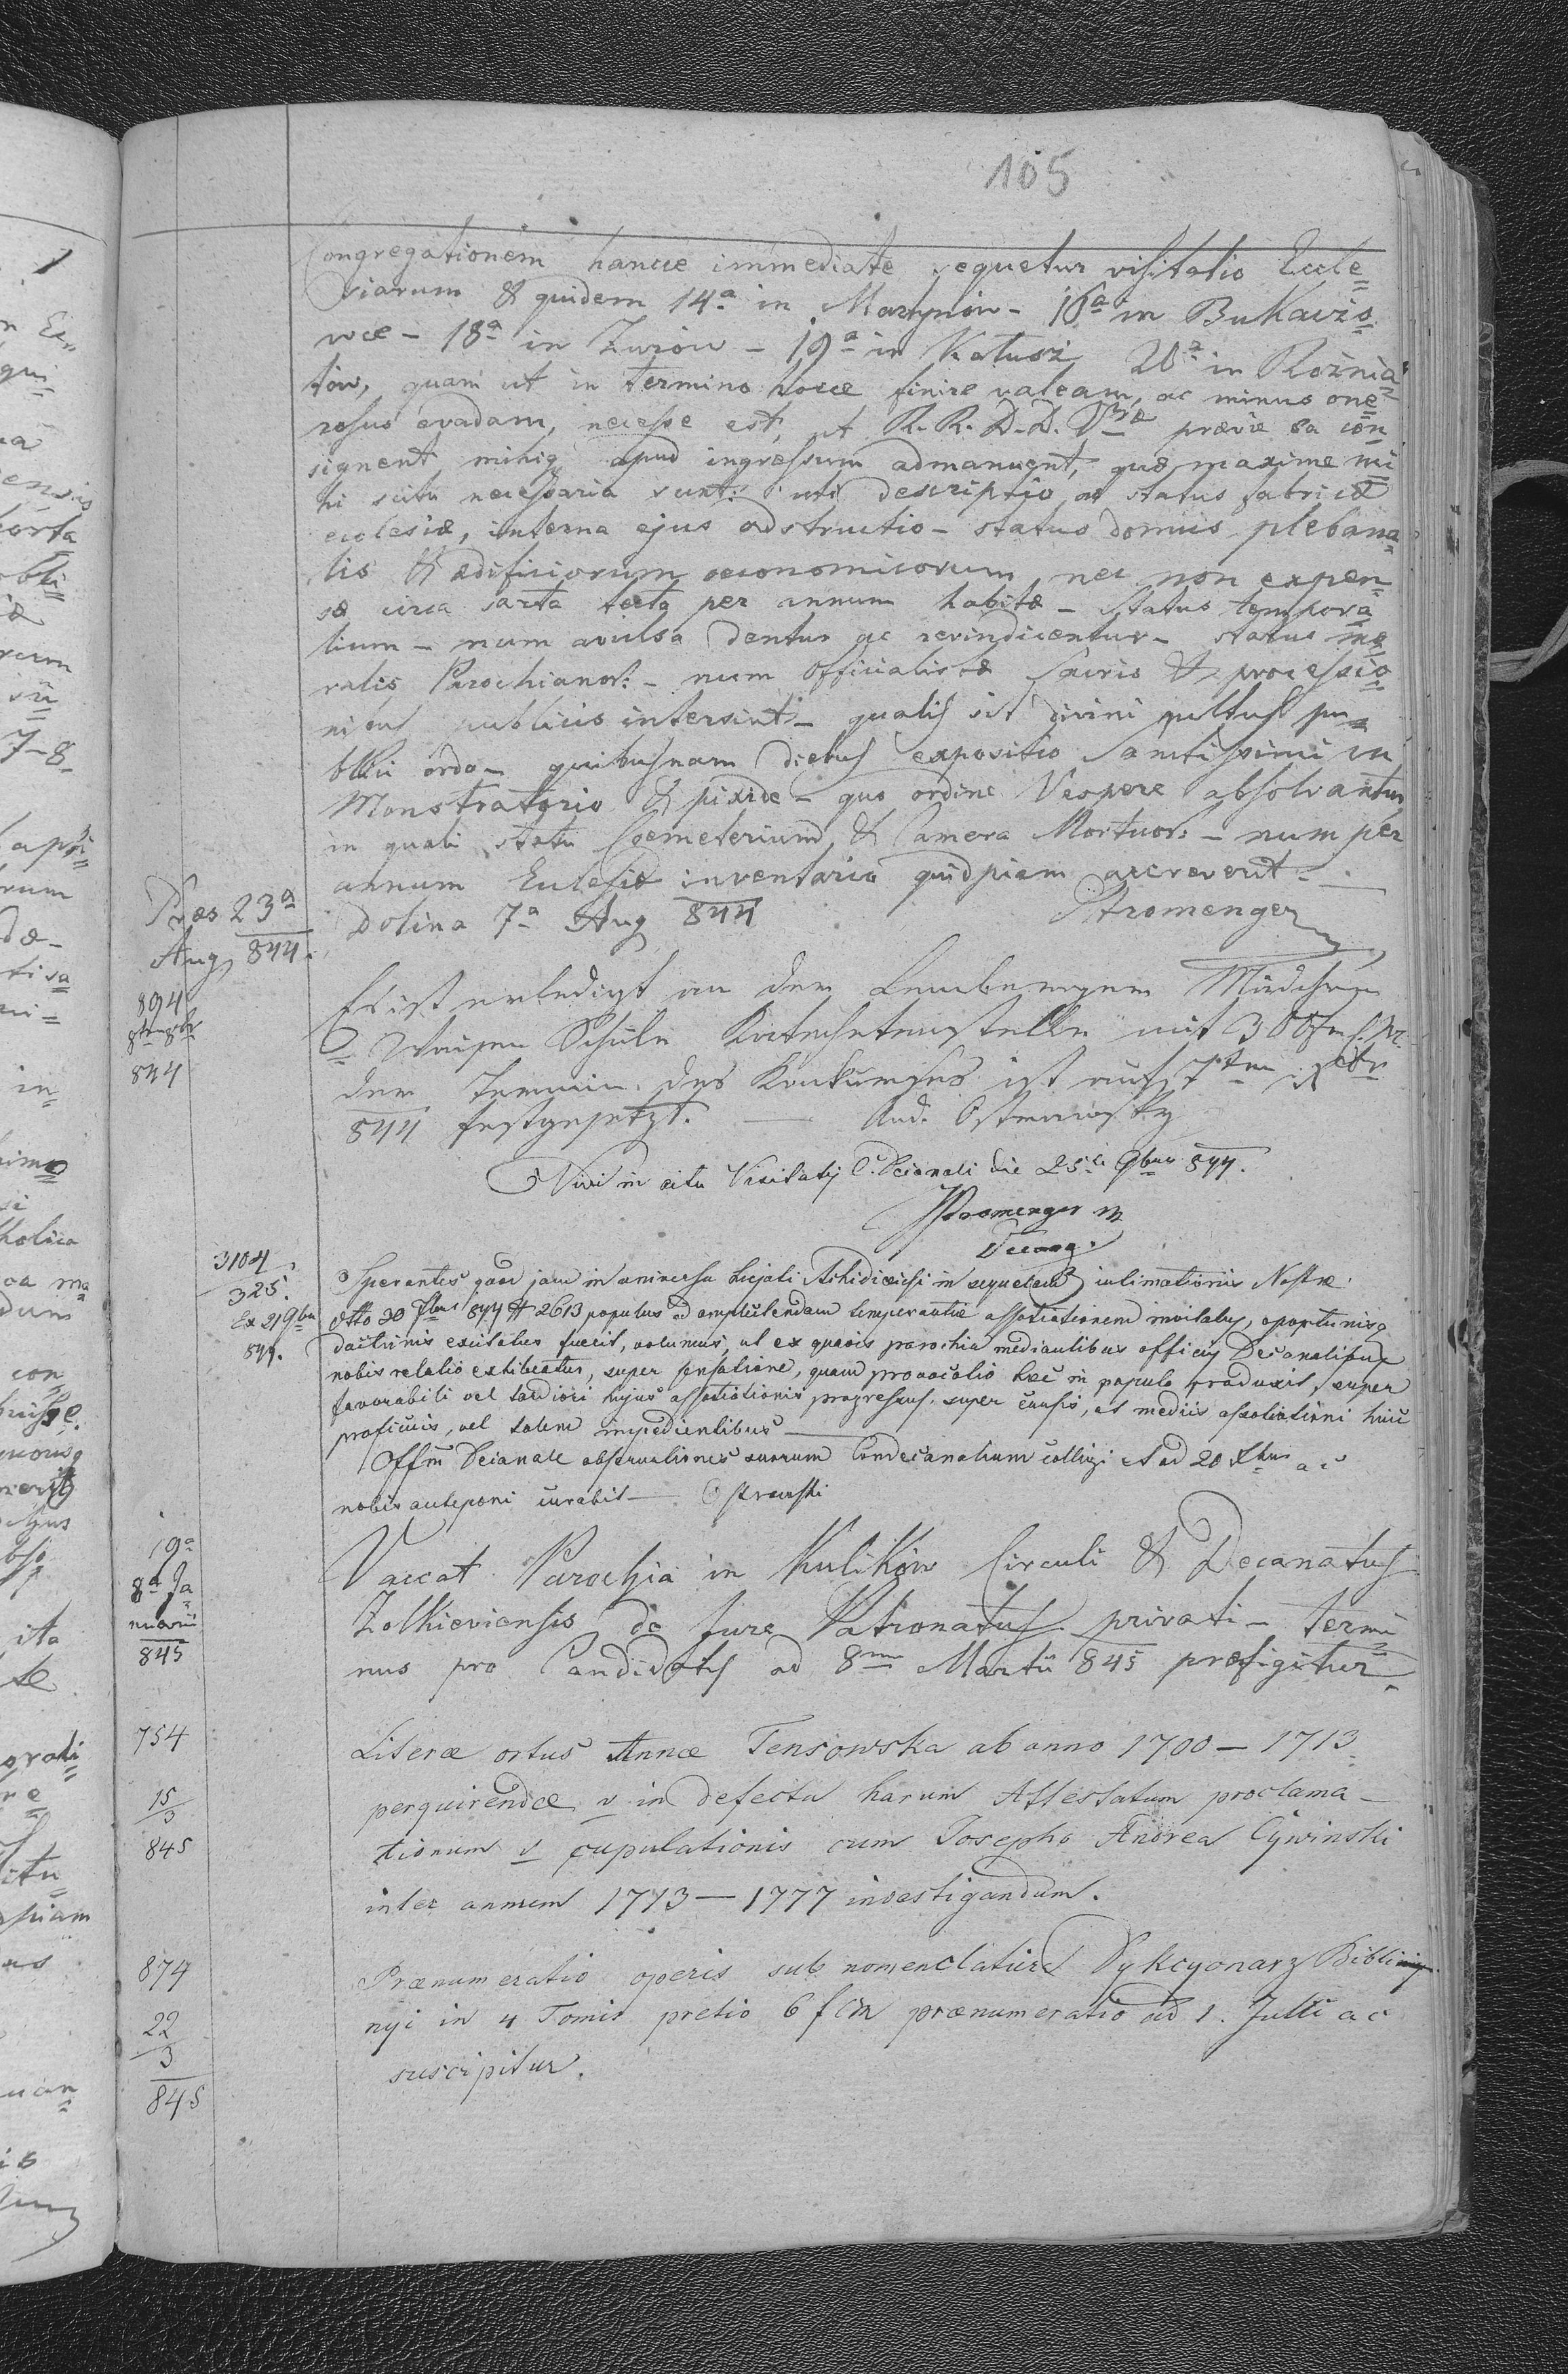 105
Congregationem hancce immediate sequetur visitatio Eccle=
siarum & quidem 14a in Martynów - 16a in Bukaczo=
wce - 18a in Zurów - 19a in Kałusz 20a in Rożnia=
tów, quam ut in termino hocce finire valeam, ac minus one=
rosus evadam, necesse est, ut R.R. D.D. Vrae praevie ea con=
signent mihiq apud ingressum admanuent, quae maxime mi=
hi scitu necessaria sunt: uti descriptio ac status fabricae
ecclesiae, interna ejus adstructio - status domus plebana=
lis & aedificiorum oeconomicorum nec non expen=
sae circa sarta tecta per annum habitae - status tempora=
lium - num avulsa dentur ac revindicentur - status mo=
ralis Parochianor: - num officialistae sacris & processio=
nibus publicis intersint - qualis sit divini cultus pu=
blici ordo - quibusnam diebus expositio Sanctissimi in
Monstratorio & pixide - quo ordine Vespere absolvantur
in quali statu Coemeterium & Camera Mortuor: - num per
annum Eclesiae inventario quidpiam accreverit. -
Praes 23a
Aug 844.
Dolina 7a Aug 844 Stromenger
894
844
Es ist erledigt an der Lemberger Mädchen
Waisen Schule Katechetenstelle mit 300 f
der Termin des Konkurses ist auf 7ten
844 festgesetzt. - And. Ostrawsky
Vidi in actu Visitatis C. Decanali die 25 9bris 844.
Stromenger m
Decang.
3104
325.
Ex 21 9bris
844.
Sperantes quod jam in universa hujati Achidioecesi in sequelam intimationis Nostrae
dtto 20 7bris 844 # 2613 populus ad amplectendam temperantiae associationem invitatus, oportunisq
doctrinis excitatus fuerit, volumus, ut ex quavis parochia mediantibus officiis Decanalibus
nobis relatio exhibeatur, super sensatione, quam provocatio haec in populo produxit, super
favorabili vel tardiori hujus associationis progressus, super causis, ac mediis associationi huic
proficuis, vel talem impedientibus -
Offm Decanale observationes suorum Condecanalium colligi et ad 20 Xbris a c
nobis anteponi curabit - Ostrawski
19a
8a Ja=
nuarii
845
Vaccat Parochia in Kulików Circuli & Decanatus
Zolkieviensis de Jure Patronatus privati - termi=
nus pro Candidatis ad 8m Martii 845 praefigitur.
754
15
3
845
Literae ortus Annae Tensowska ab anno 1700 - 1713
perquirendae v in defectu harum Attestatum proclama-
tionum v cupulationis cum Josepho Andrea Cywinski
inter annum 1773 - 1777 investigandum.
874
22
3
845
Praenumeratio operis sub nomenclatura Dykcyonarz Biblii
nyi in 4 Tomis pretio 6 f cm praenumeratio ad 1. Julii a c
suscipitur.